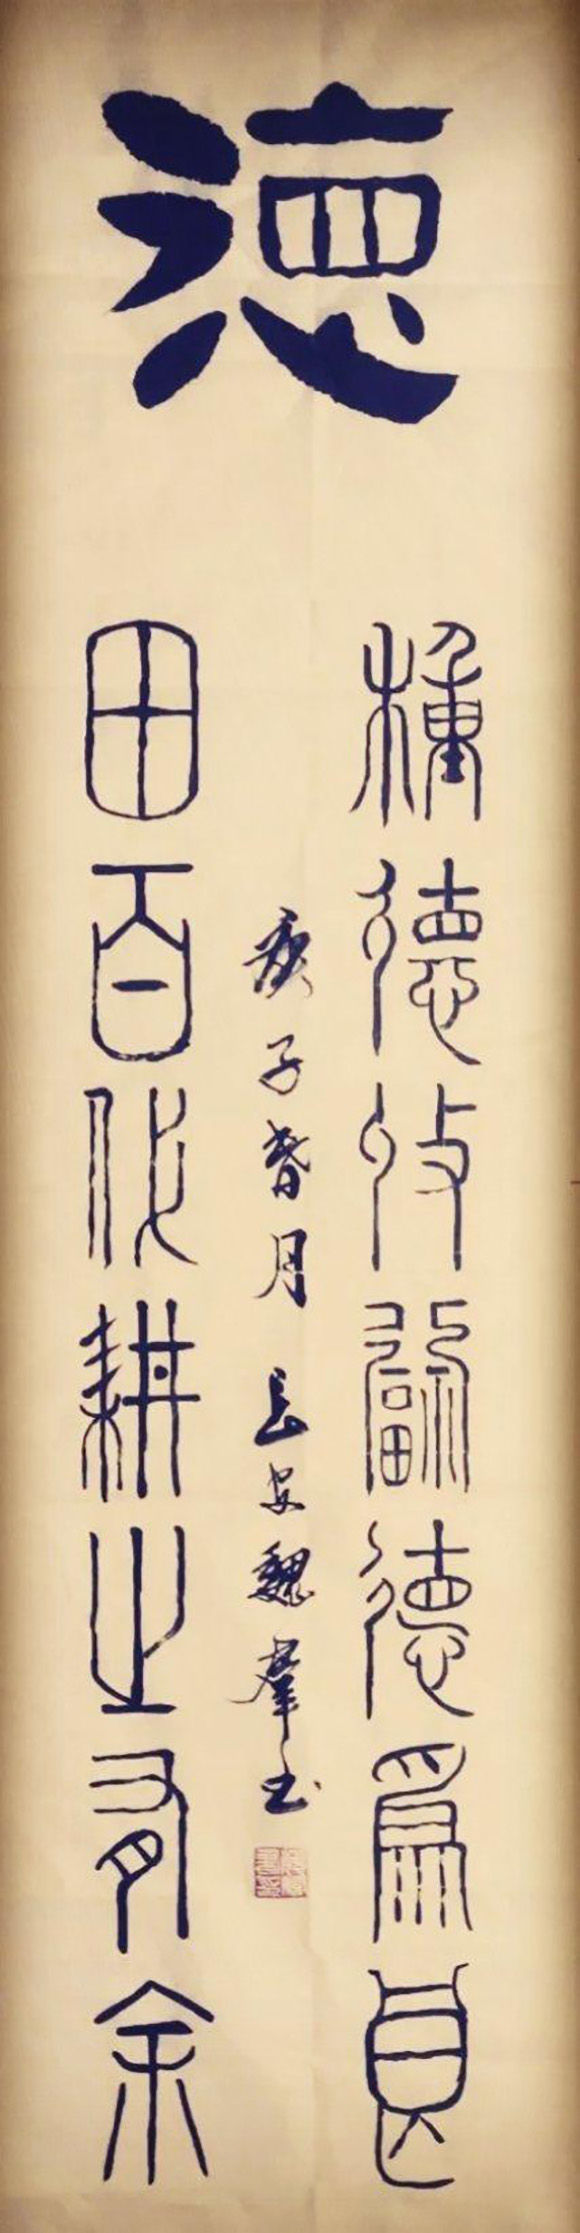 德
種德收福德為良
田百代耕之有余
庚子春月 長安魏羣書